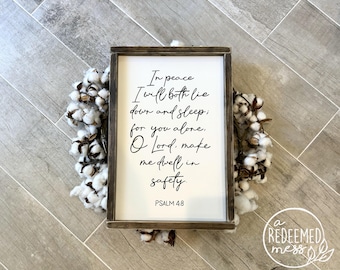 In peace
I will both lie
down and sleep;
for you alone,
O Lord, make
me dwell in
safety.
PSALM 4:8
a
REDEEMED
mess